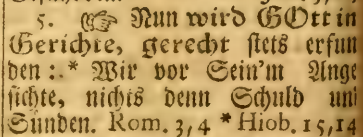 5. ☞ Nun wird GOtt in
Gerichte, gerecht stets erfun
den: * Wir vor Sein'm Ange
sichte, nichts denn Schuld und
Sünden. Rom. 3,4 * Hiob. 15,14